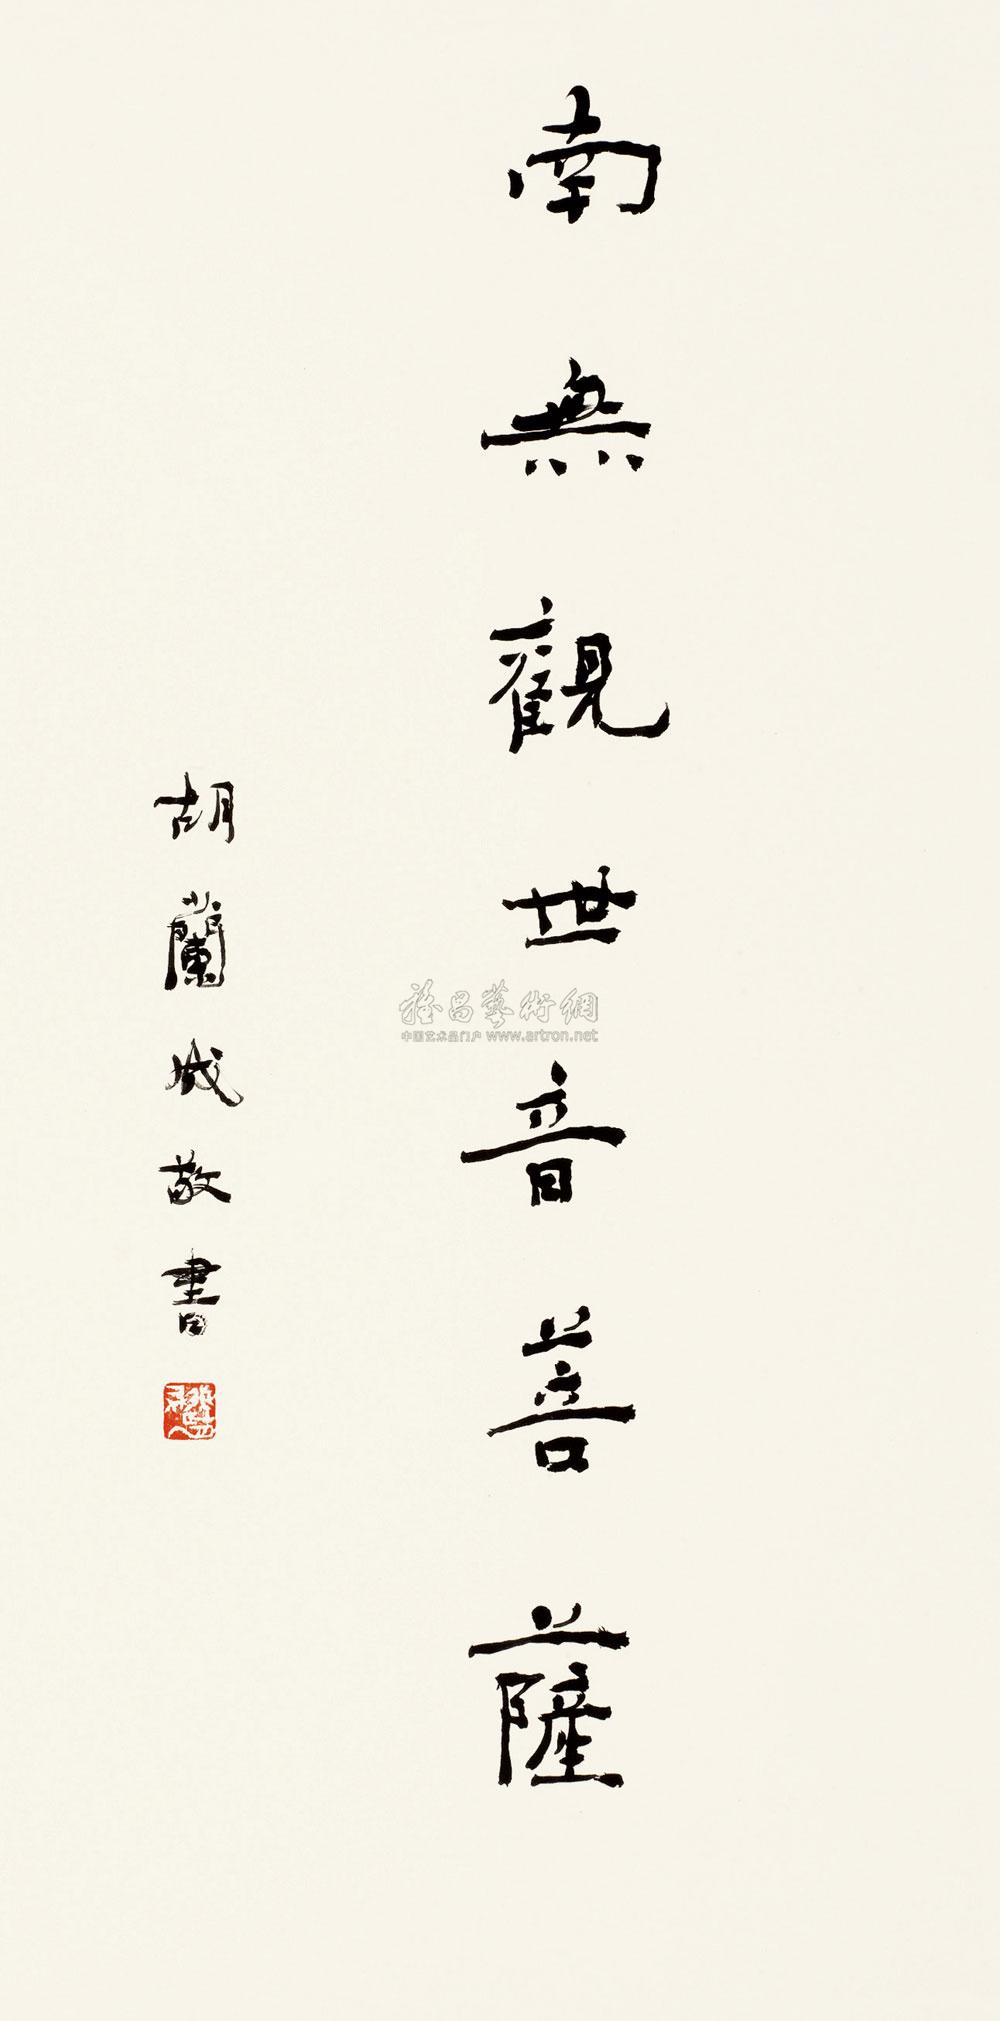 南無觀世音菩薩
胡蘭成敬書
雅昌藝術網
中国艺术品门户 www.artron.net